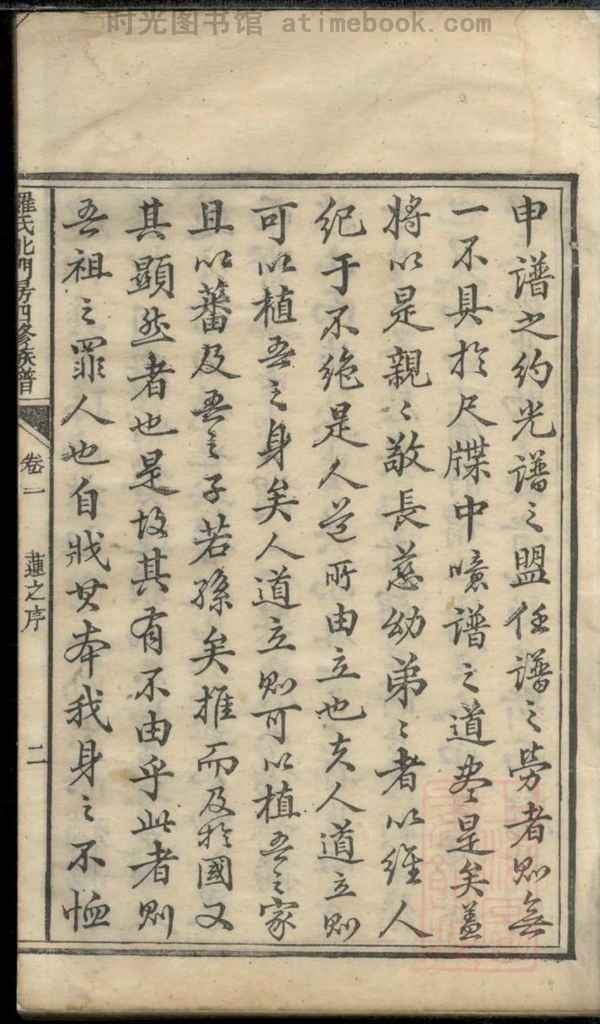 时光图书馆 atimebook.com
申譜之約光譜之盟任譜之勞者則無
一不具於尺牒中噫譜之道盡是矣蓋
將以是親々敬長慈幼弟々者以維人
紀于不絶是人道所由立也夫人道立則
可以植吾之身矣人道立則可以植吾之家
且以蕃及吾之子若孫矣推而及於國又
其顯然者也是故其有不由乎此者則
吾祖之罪人也自戕其本我身之不恤
羅氏北門房四修族譜
卷一
蓮之序
二